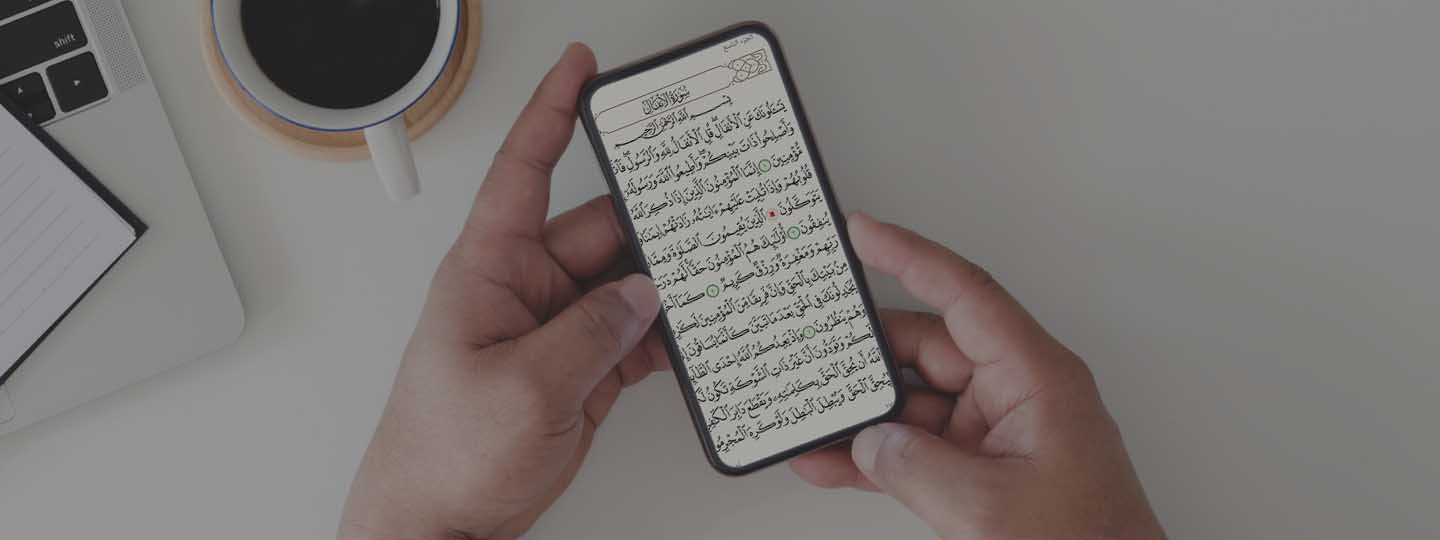 الجزء التاسع
سُورَةُ الأَنفَالِ
بِسْمِ ٱللَّهِ ٱلرَّحْمَـٰنِ ٱلرَّحِيمِ
يَسْـَٔلُونَكَ عَنِ ٱلْأَنفَالِ ۖ قُلِ ٱلْأَنفَالُ لِلَّهِ وَٱلرَّسُولِ ۖ
وَأَصْلِحُوا۟ ذَاتَ بَيْنِكُمْ ۖ وَأَطِيعُوا۟ ٱللَّهَ وَرَسُولَهُۥٓ
مُّؤْمِنِينَ ١ إِنَّمَا ٱلْمُؤْمِنُونَ ٱلَّذِينَ إِذَا ذُكِرَ ٱللَّهُ
قُلُوبُهُمْ وَإِذَا تُلِيَتْ عَلَيْهِمْ ءَايَـٰتُهُۥ زَادَتْهُمْ إِيمَـٰنًا
يَتَوَكَّلُونَ ٱلَّذِينَ يُقِيمُونَ ٱلصَّلَوٰةَ وَمِمَّا
يُنفِقُونَ ٣ أُو۟لَـٰٓئِكَ هُمُ ٱلْمُؤْمِنُونَ حَقًّا ۚ لَّهُمْ
رَبِّهِمْ وَمَغْفِرَةٌ وَرِزْقٌ كَرِيمٌ ٤ كَمَآ
مِنۢ بَيْتِكَ بِٱلْحَقِّ وَإِنَّ فَرِيقًا مِّنَ ٱلْمُؤْمِنِينَ
يُجَـٰدِلُونَكَ فِى ٱلْحَقِّ بَعْدَ مَا تَبَيَّنَ كَأَنَّمَا يُسَاقُونَ
وَهُمْ يَنظُرُونَ ٦ وَإِذْ يَعِدُكُمُ ٱللَّهُ إِحْدَى
لَكُمْ وَتَوَدُّونَ أَنَّ غَيْرَ ذَاتِ ٱلشَّوْكَةِ تَكُونُ
ٱللَّهُ أَن يُحِقَّ ٱلْحَقَّ بِكَلِمَـٰتِهِۦ وَيَقْطَعَ دَابِرَ
لِيُحِقَّ ٱلْحَقَّ وَيُبْطِلَ ٱلْبَـٰطِلَ وَلَوْ كَرِهَ